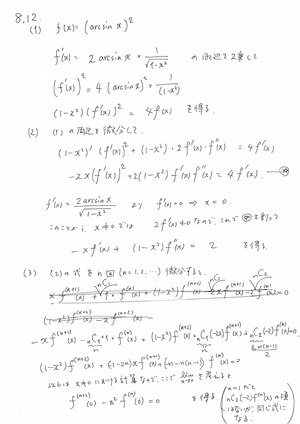 8.12.
(1) f(x) = (arcsin x)²
f'(x) = 2 arcsin x × 1/√(1-x²) の両辺を2乗して
(f'(x))² = 4 (arcsin x)² × 1/(1-x²)
(1-x²)(f'(x))² = 4f(x) を得る.
(2) (1)の両辺を微分して.
(1-x²)'(f'(x))² + (1-x²)・2f'(x)・f''(x) = 4f'(x)
-2x(f'(x))² + 2(1-x²)f'(x)f''(x) = 4f'(x) …
f'(x) = 2 arcsin x/√(1-x²) より f'(x)=0 → x=0
このことから, x≠0では 2f'(x)≠0なので, これで を割って
-x f'(x) + (1-x²)f''(x) = 2 を得る.
(3) (2)の式をn回 (n=1,2,…) 微分すると,
-x f^(n+1)(x) - nC1・1・f^(n)(x) + (1-x²)f^(n+2)(x) + nC1(-2x)f^(n+1)(x) + nC2(-2)f^(n)(x) = 0
(1-x²)f^(n+2)(x) + (-1-2n)x f^(n+1)(x) + (-n-n(n-1))f^(n)(x) = 0
以上は x≠0における計算なので, ここで lim x→0 を考えると
f^(n+2)(0) - n² f^(n)(0) = 0 を得る.
(n=1だと nC2(-2)f^(n)(x)の項はないが, 同じ式になる.)